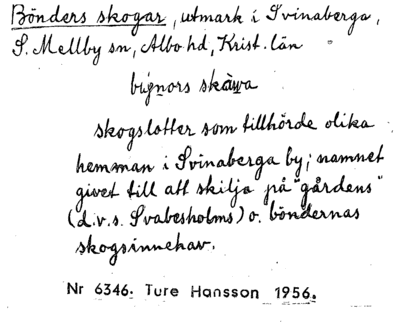 Bönders skogar, utmark i Svinaberga,
S. Mellby sn, Albo hd, Krist. län
skogslotter som tillhörde olika
hemman i Svinaberga by; namnet
givet till att skilja på "gårdens"
(d.v.s. Svabesholms) o. böndernas
skogsinnehav.
Nr 6346. Ture Hansson 1956.